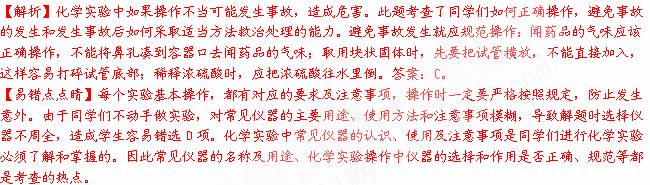 【解析】化学实验中如果操作不当可能发生事故，造成危害。此题考查了同学们如何正确操作，避免事故
的发生和发生事故后如何采取适当方法救治处理的能力。避免事故发生就应规范操作：闻药品的气味应该
正确操作，不能将鼻孔凑到容器口去闻药品的气味；取用块状固体时，先要把试管横放，不能直接加入，
这样容易打碎试管底部；稀释浓硫酸时，应把浓硫酸往水里倒。答案：C。
【易错点点晴】每个实验基本操作，都有对应的要求及注意事项，操作时一定要严格按照规定，防止发生
意外。由于同学们不动手做实验，对常见仪器的主要用途、使用方法和注意事项模糊，导致解题时选择仪
器不周全，造成学生容易错选D项。化学实验中常见仪器的认识、使用及注意事项是同学们进行化学实验
必须了解和掌握的。因此常见仪器的名称及用途、化学实验操作中仪器的选择和作用是否正确、规范等都
是考查的热点。